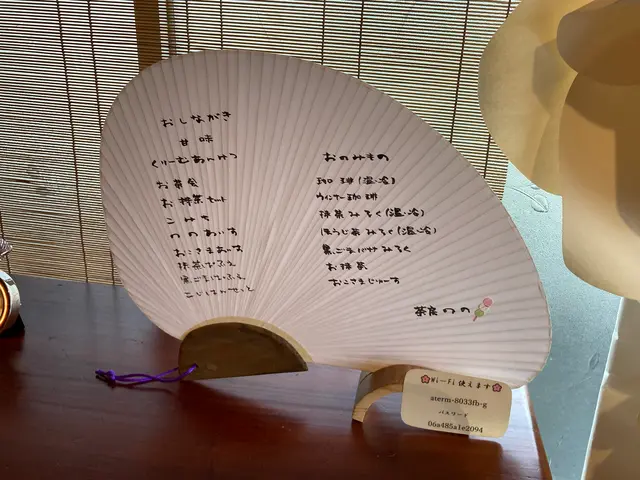 おしながき
甘味
くりーむあんみつ
お茶会
お抹茶セット
こもち
つのあいす
おこさまあいす
抹茶ぱふぇ
黒ごまぱふぇ
おのみもの
珈琲(温・冷)
ウィンナー珈琲
抹茶みるく(温・冷)
ほうじ茶みるく(温・冷)
黒ごまバナナみるく
お抹茶
おこさまじゅーす
茶房つの
Wi-Fi使えます
aterm-8033fb-g
パスワード
06a485a1e2094